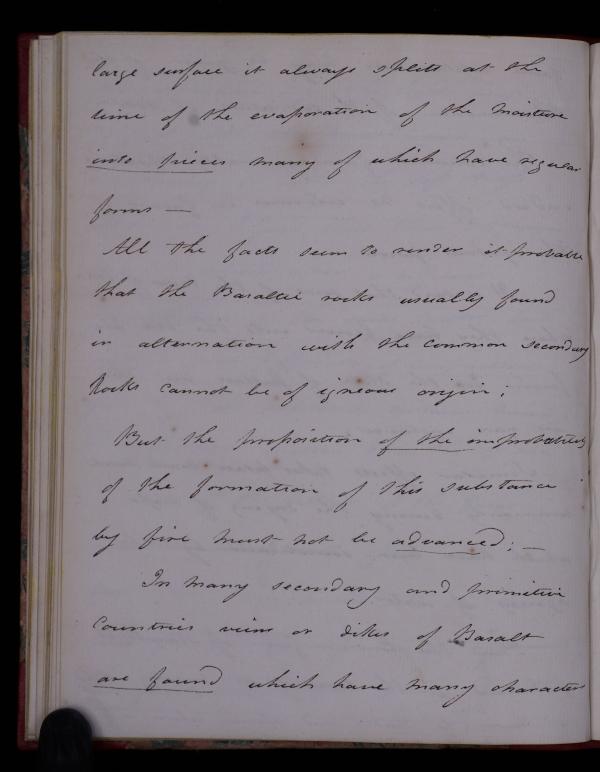 large surface it always splits at the
time of the evaporation of the moisture
into pieces many of which have regular
forms —
All the facts seem to render it probable
that the Basaltic rocks usually found
in alternation with the common secondary
Rocks cannot be of igneous origin;
But the proposition of the improbability
of the formation of this substance
by fire must not be advanced; —
In many secondary and primitive
Countries veins or dikes of Basalt
are found which have many characters